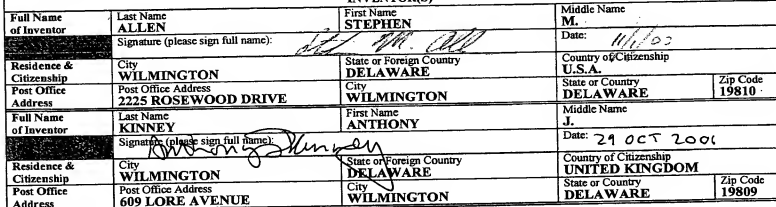 INVENTOR(S)
Full Name of Inventor Last Name ALLEN First Name STEPHEN Middle Name M.
Signature (please sign full name): Date:
Residence & Citizenship City WILMINGTON State or Foreign Country DELAWARE Country of Citizenship U.S.A.
Post Office Address Post Office Address 2225 ROSEWOOD DRIVE City WILMINGTON State or Country DELAWARE Zip Code 19810
Full Name of Inventor Last Name KINNEY First Name ANTHONY Middle Name J.
Signature (please sign full name): Anthony J Kinney Date: 29 OCT 2001
Residence & Citizenship City WILMINGTON State or Foreign Country DELAWARE Country of Citizenship UNITED KINGDOM
Post Office Address Post Office Address 609 LORE AVENUE City WILMINGTON State or Country DELAWARE Zip Code 19809